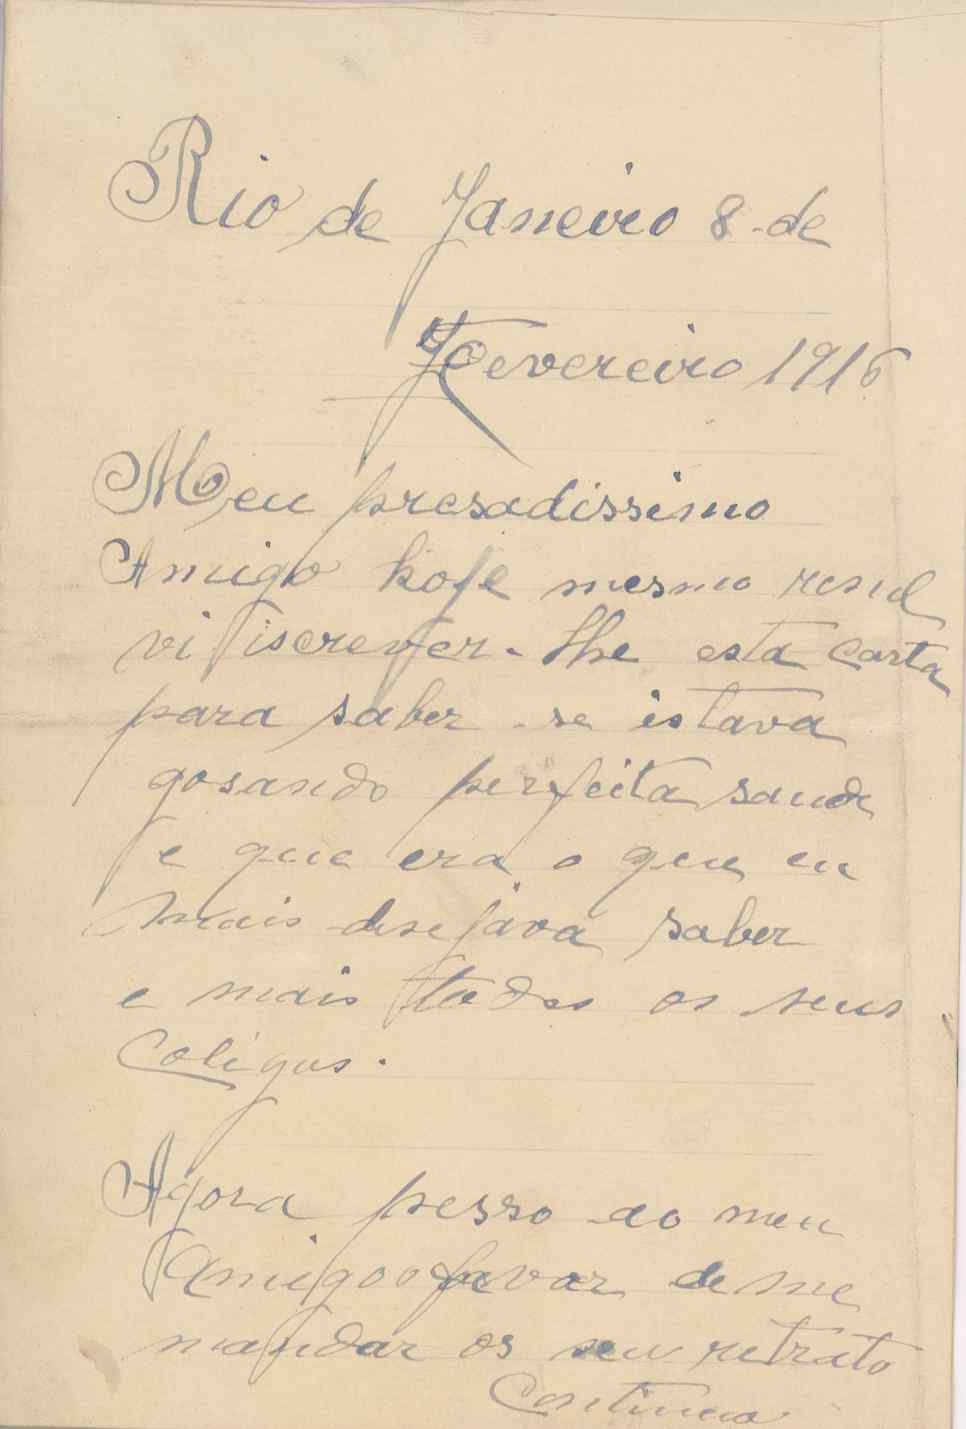 Rio de Janeiro 8 de
Fevereiro 1916
Meu presadissimo
Amigo hoje mesmo resul
vi iscrever-lhe esta carta
para saber se istava
gosando perfeita saude
e que era o que eu
mais desejava saber
e mais todos os seus
Coligas.
Agora pesso ao meu
Amigo o favor de me
mandar os seu retrato
Continua